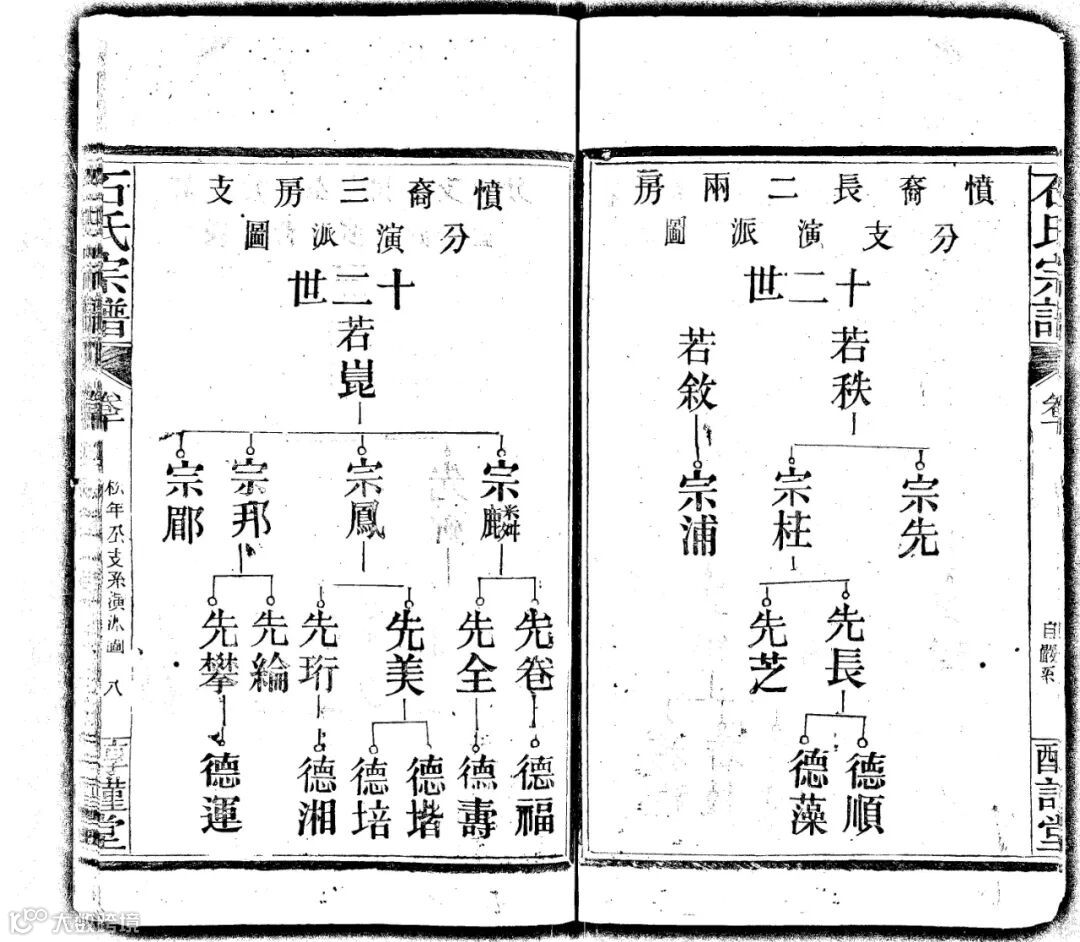 憤裔長二兩房
分支演派圖
十二世
若秩
若敘
宗先
宗柱
宗浦
先長
先芝
德順
德藻
自嚴系
憤裔三房支
分演派圖
十二世
若崑
宗麟
宗鳳
宗邦
宗郿
先卷
先全
先美
先珩
先綸
先攀
德福
德壽
德堦
德培
德湘
德運
石氏宗譜
支系演派圖
八
堂
大数跨境